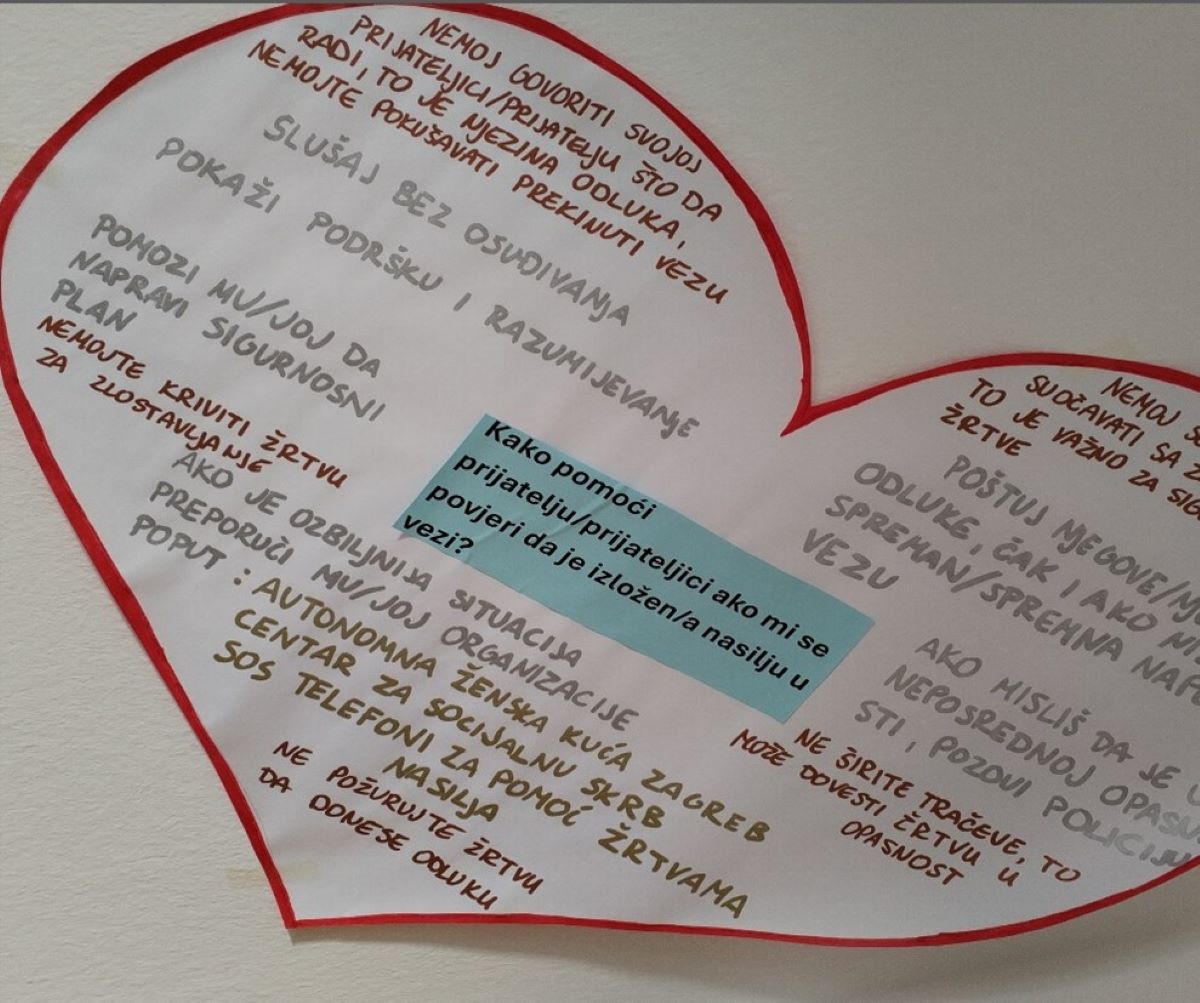 NEMOJ GOVORITI SVOJOJ
PRIJATELJICI/PRIJATELJU ŠTO DA
RADI, TO JE NJEZINA ODLUKA,
NEMOJTE POKUŠAVATI PREKINUTI VEZU
SLUŠAJ BEZ OSUĐIVANJA
POKAŽI PODRŠKU I RAZUMIJEVANJE
POMOZI MU/JOJ DA
NAPRAVI SIGURNOSNI
PLAN
NEMOJTE KRIVITI ŽRTVU
ZA ZLOSTAVLJANJE
Kako pomoći
prijatelju/prijateljici ako mi se
povjeri da je izložen/a nasilju u
vezi?
AKO JE OZBILJNIJA SITUACIJA
PREPORUČI MU/JOJ ORGANIZACIJE
POPUT : AUTONOMNA ŽENSKA KUĆA ZAGREB
CENTAR ZA SOCIJALNU SKRB
SOS TELEFONI ZA POMOĆ ŽRTVAMA
NASILJA
NE POŽURUJTE ŽRTVU
DA DONESE ODLUKU
NEMOJ
SUOČAVATI SA
TO JE VAŽNO ZA
ŽRTVE
POŠTUJ NJEGOVE/
ODLUKE, ČAK I AKO
SPREMAN/SPREMNA
VEZU
AKO MISLIŠ DA JE U
NEPOSREDNOJ OPASN
STI, POZOVI POLICIJU
NE ŠIRITE TRAČEVE, TO
MOŽE DOVESTI ŽRTVU U
OPASNOST